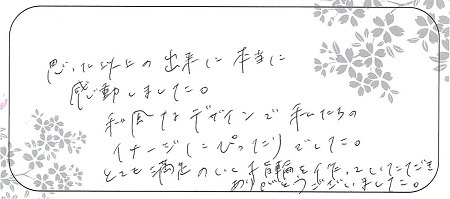 思った以上の出来に本当に
感動しました。
和風なデザインで私たちの
イメージにぴったりでした。
とても満足のいく指輪を作っていただき
ありがとうございました。